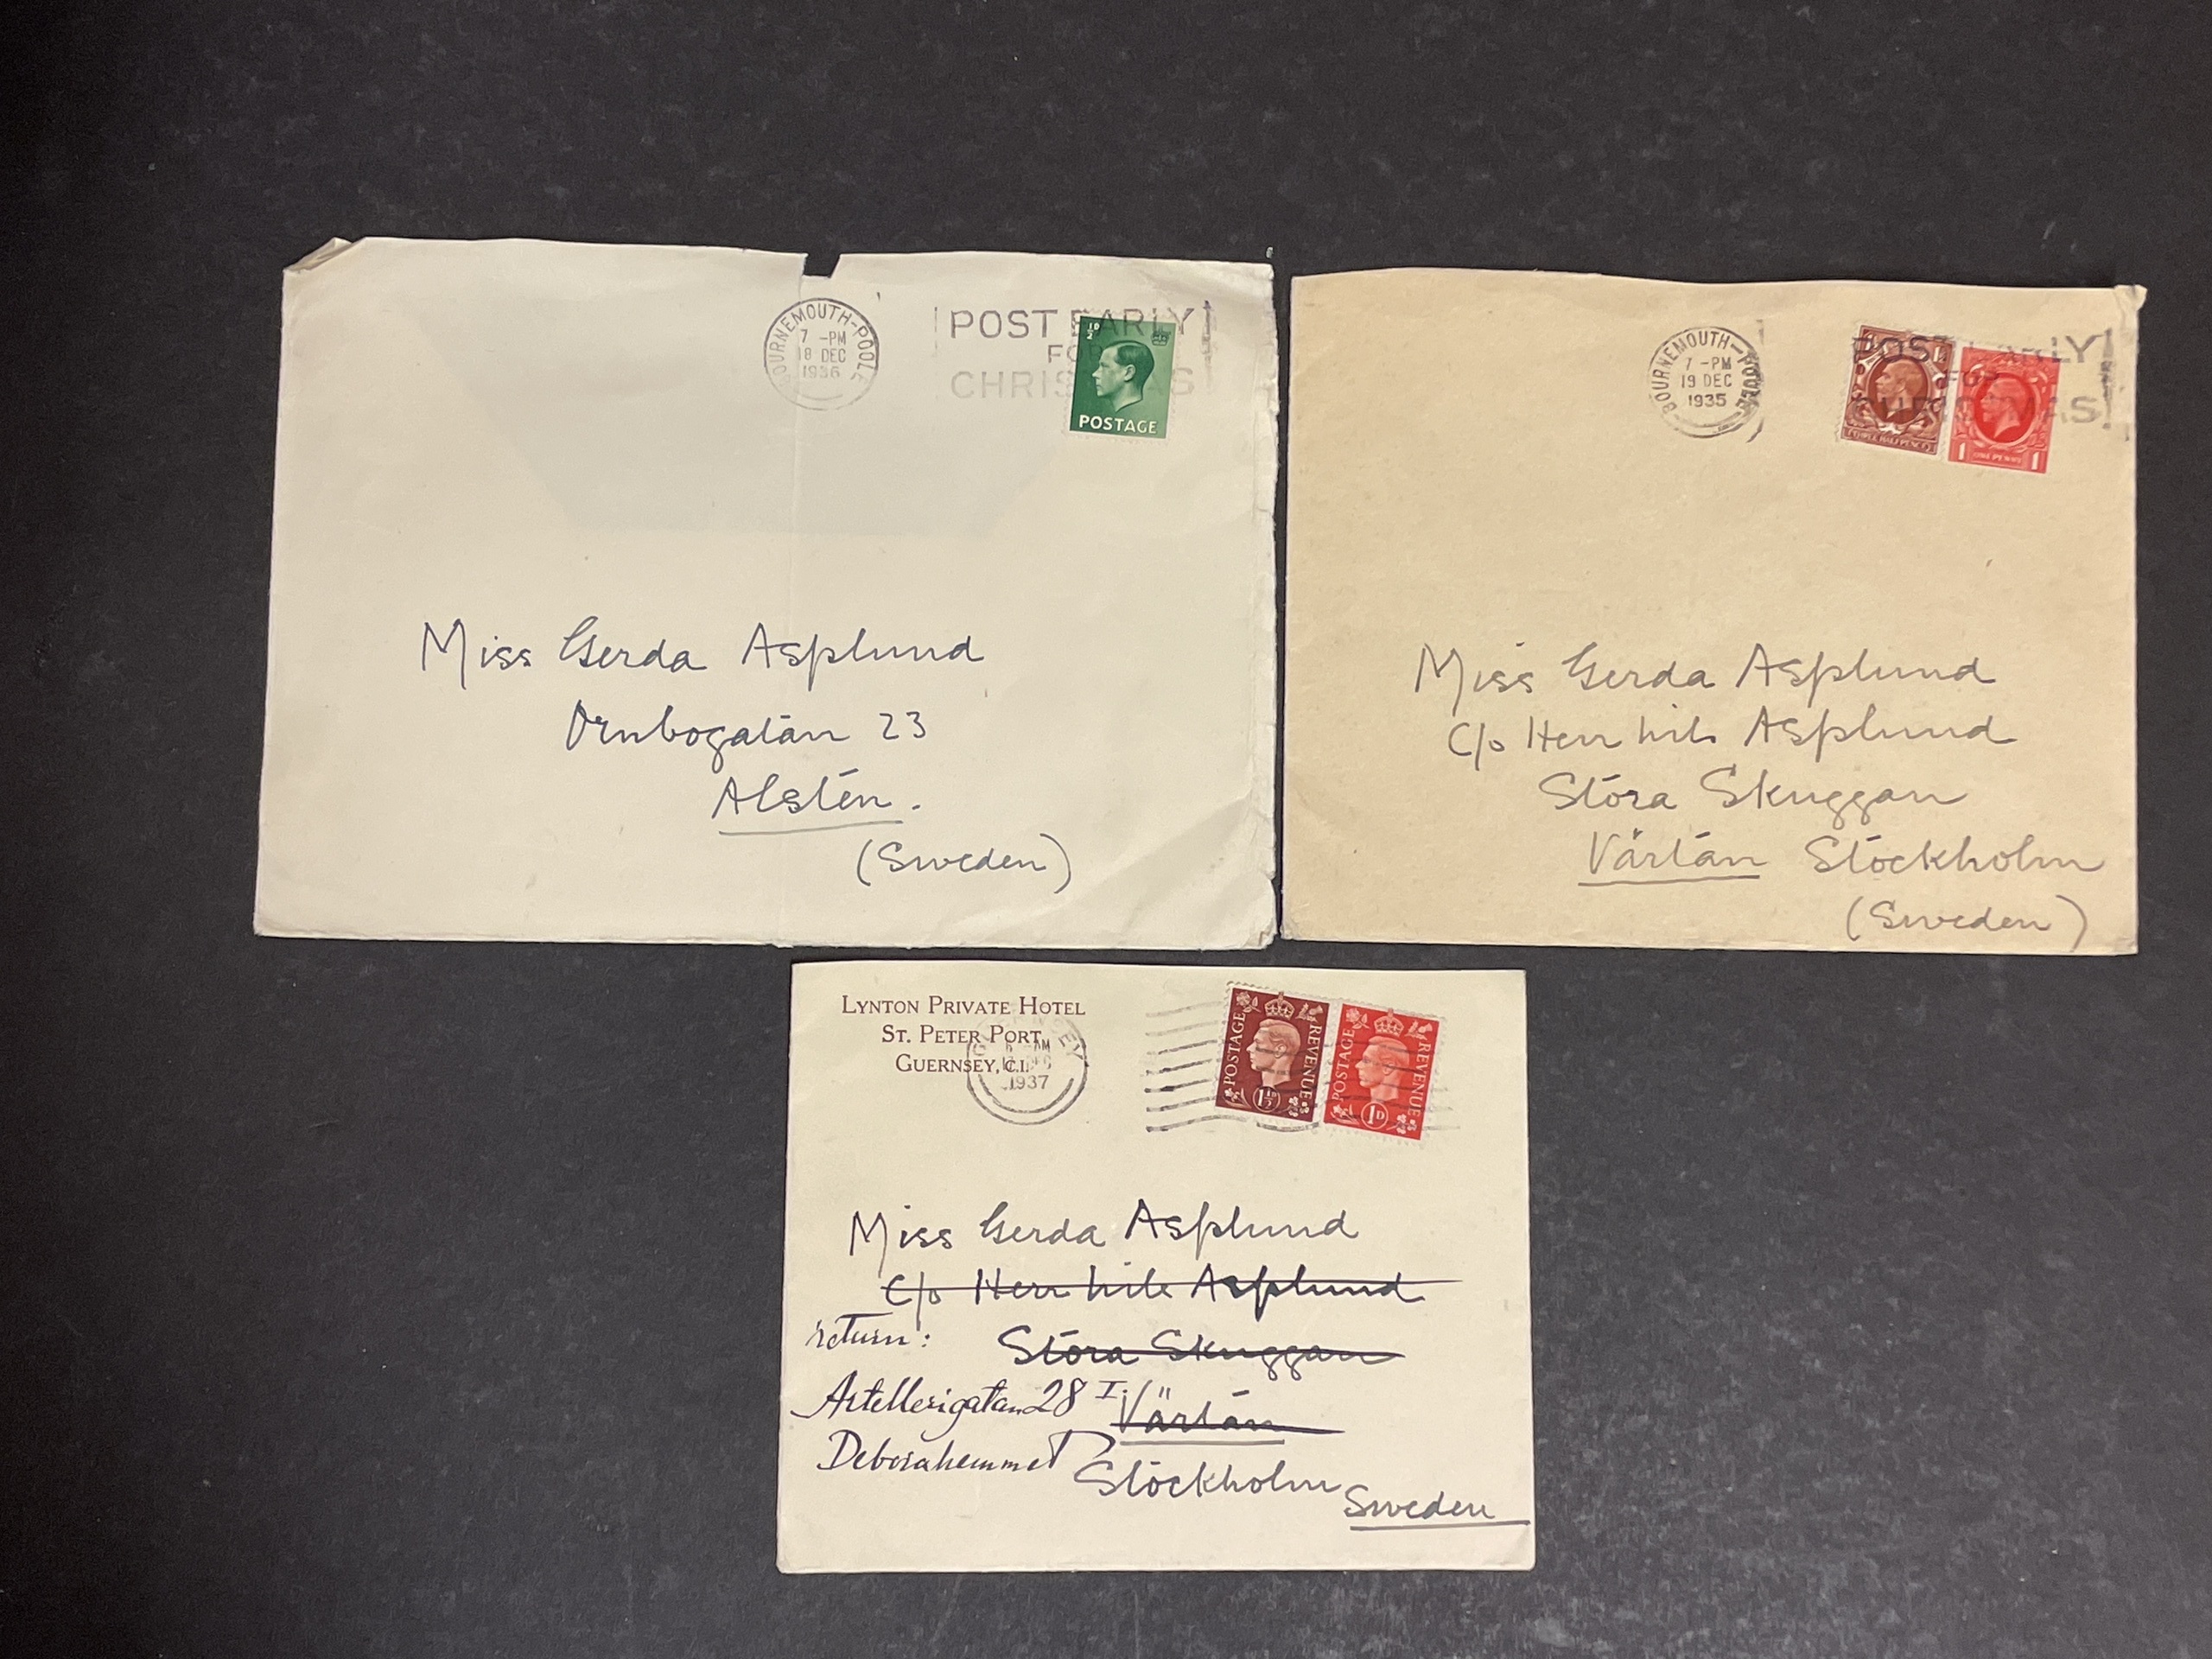 BOURNEMOUTH-POOLE
7 -PM
18 DEC
1936
POST EARLY
FOR
CHRISTMAS
½D
POSTAGE
Miss Gerda Asplund
Ornbogatan 23
Alsten.
(Sweden)
BOURNEMOUTH-POOLE
7 -PM
19 DEC
1935
POST EARLY
FOR
CHRISTMAS
THREE HALFPENCE
1 ONE PENNY 1
Miss Gerda Asplund
c/o Herr Nils Asplund
Stora Skuggan
Värtan Stockholm
(Sweden)
LYNTON PRIVATE HOTEL
ST. PETER PORT,
GUERNSEY, C.I.
PM
DEC
1937
POSTAGE REVENUE
1½D
POSTAGE REVENUE
1D
Miss Gerda Asplund
c/o Herr Nils Asplund
return: Stora Skuggan
Artellerigatan 28 I. Värtan
Deborahemmet Stockholm
Sweden